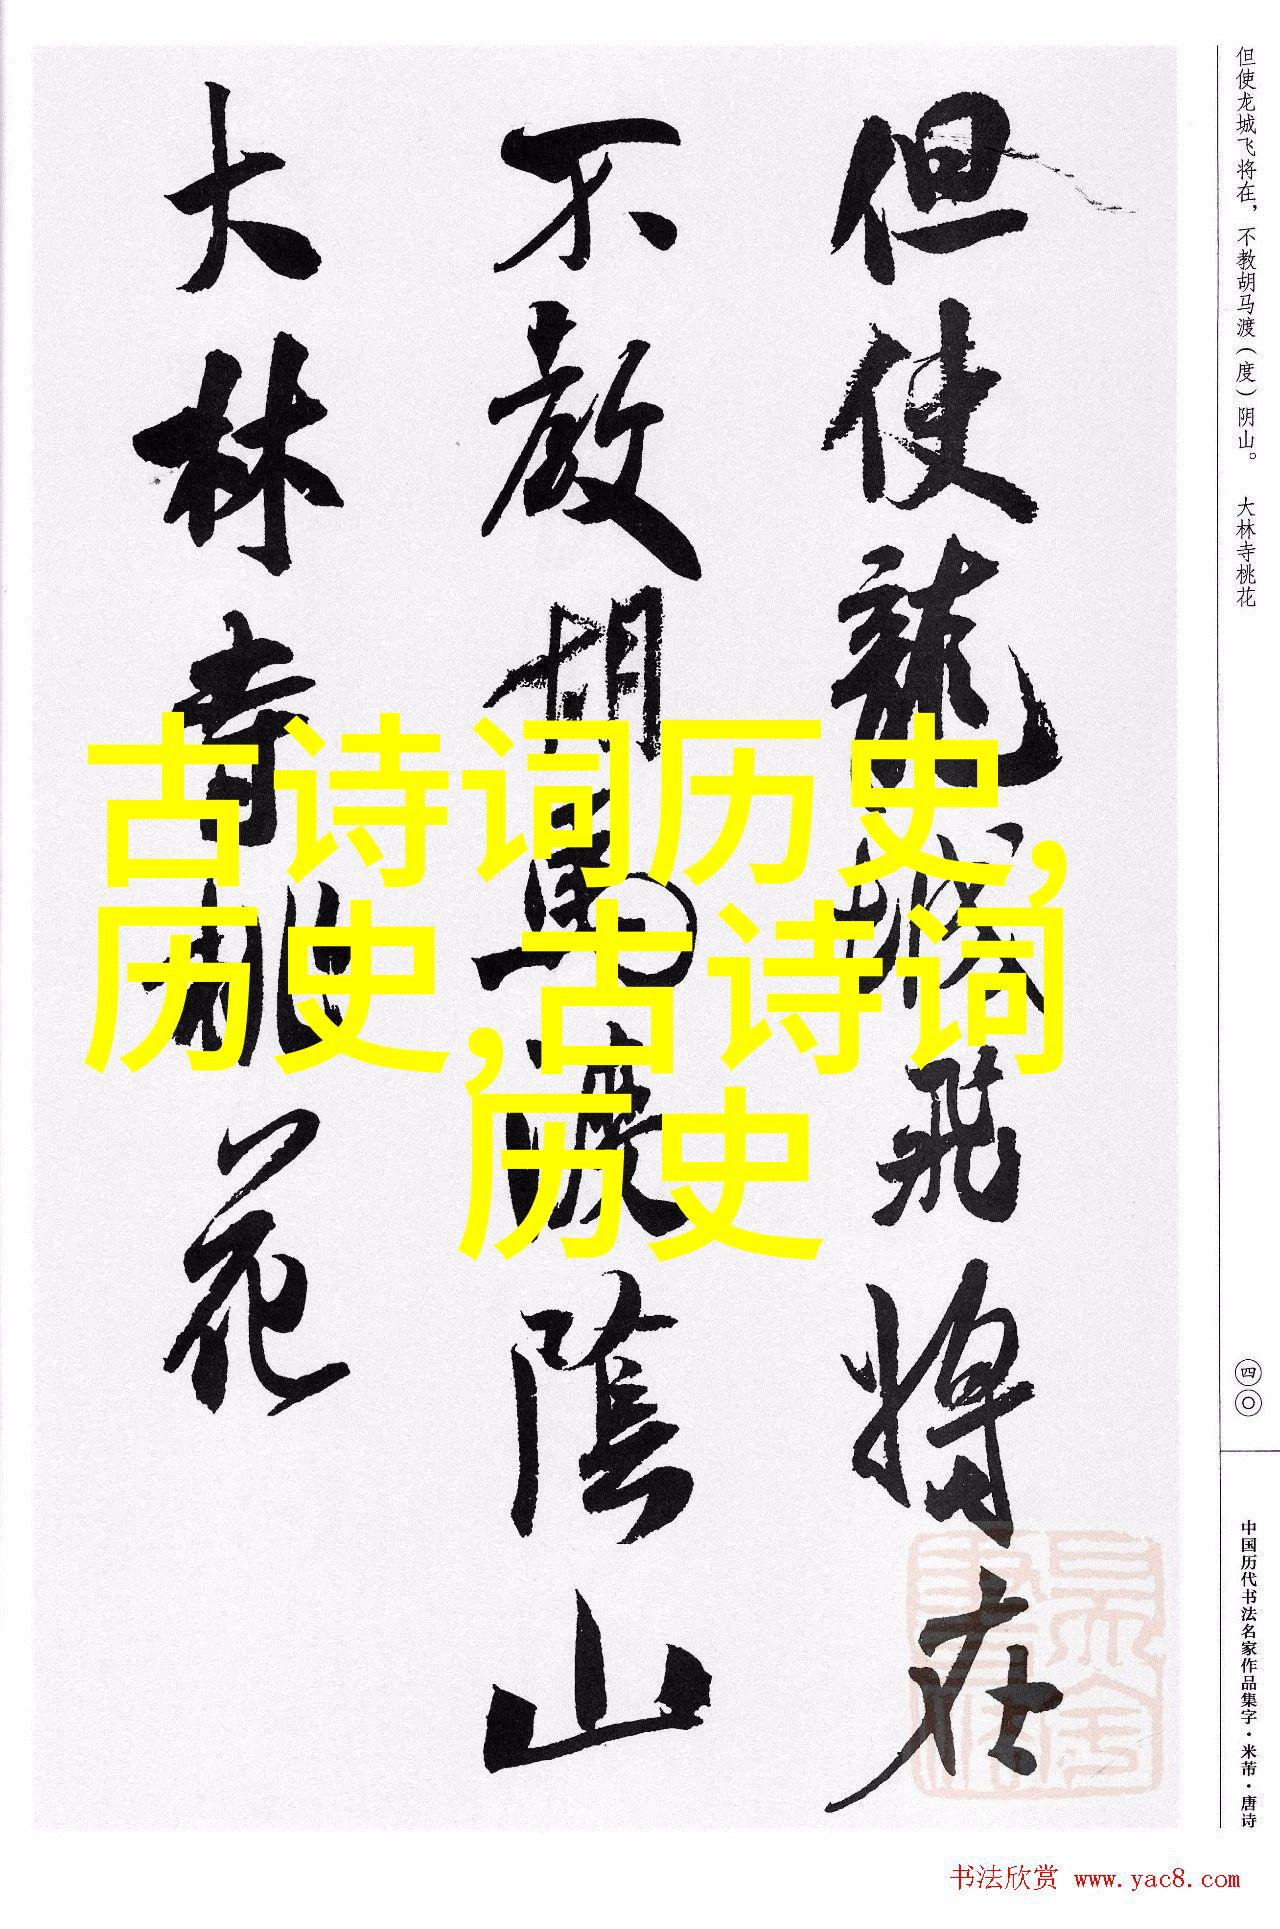 但使龍城飛将在
不教胡馬渡陰山
大林寺桃花
但使龙城飞将在，不教胡马渡（度）阴山。 大林寺桃花
四〇
中国历代书法名家作品集字·米芾·唐诗
古诗词历史,
历史,古诗词
历史
书法欣赏 www.yac8.com